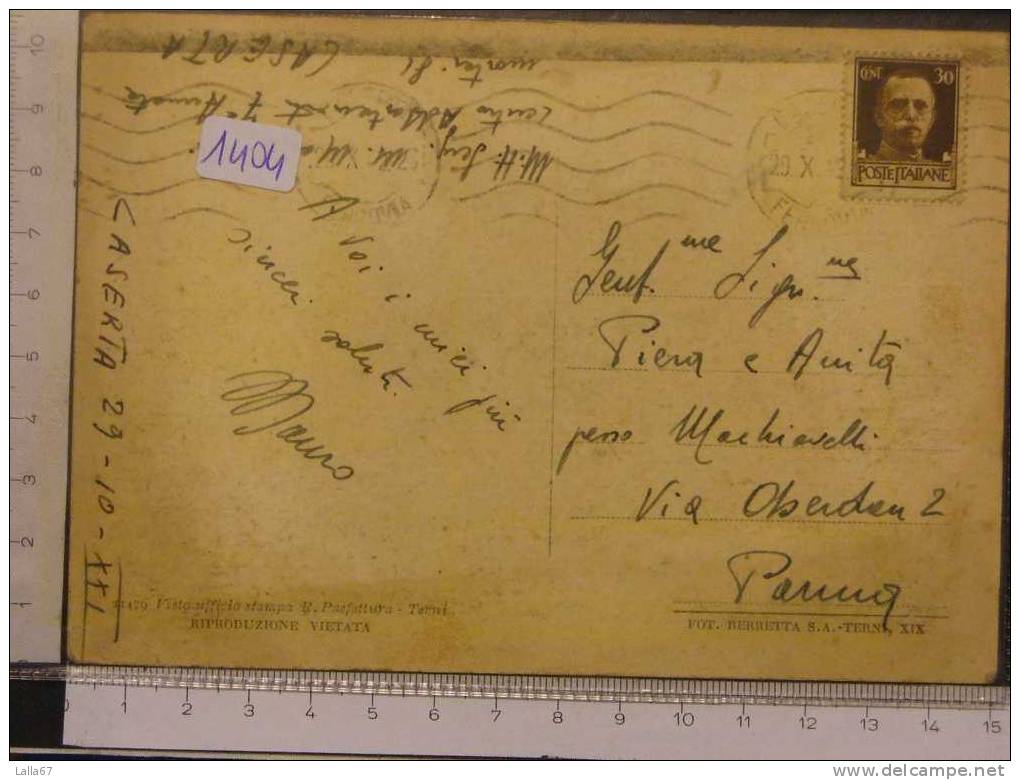 1404
CENT 30
POSTE ITALIANE
29 X
CASERTA
A Voi i miei più
sinceri saluti.
Mauro
CASERTA 29-10-XXI
Gent.me Sign.ne
Piera e Anita
presso Machiavelli
Via Oberdan 2
Parma
11479 Visto ufficio stampa R. Prefettura - Terni
RIPRODUZIONE VIETATA
FOT. BERRETTA S.A.-TERNI, XIX
10
9
8
7
6
5
4
3
2
1
1 2 3 4 5 6 7 8 9 10 11 12 13 14 15
Lalla67
delcampe.net